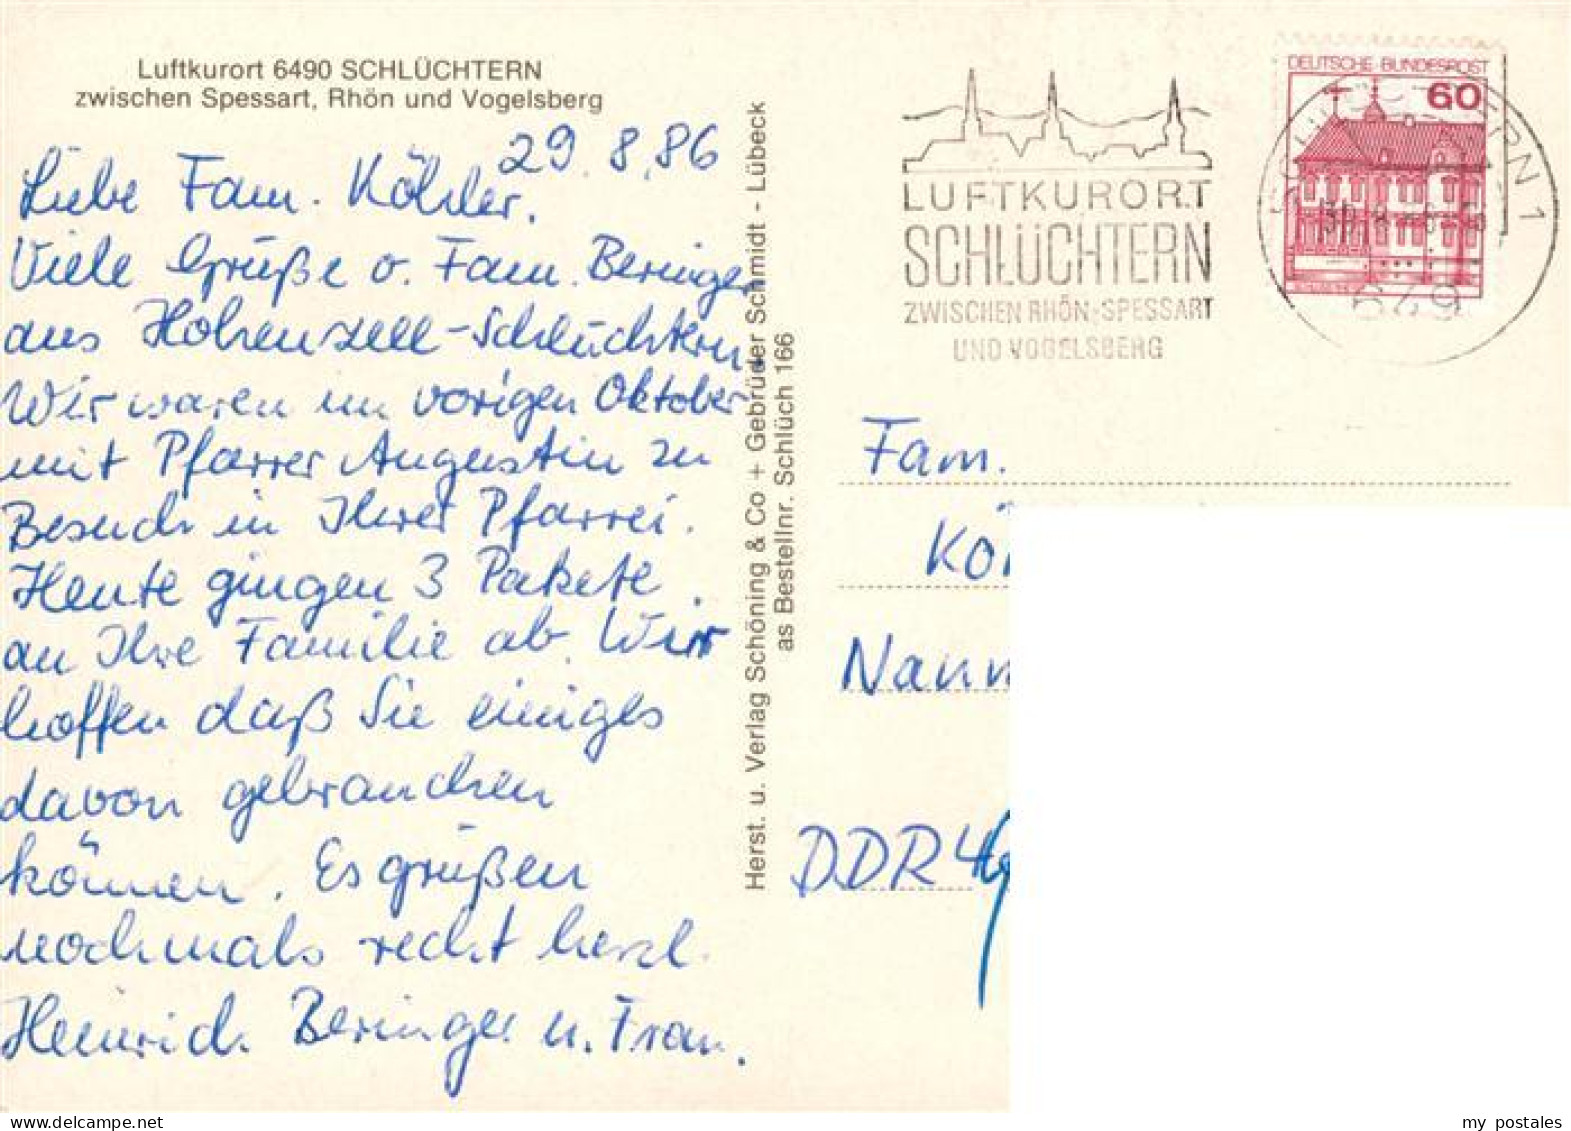 Luftkurort 6490 SCHLÜCHTERN
zwischen Spessart, Rhön und Vogelsberg
29.8.86
Liebe Fam. Köhler.
Viele Grüße v. Fam. Beringer
aus Hohenzell-Schlüchtern.
Wir waren im vorigen Oktober
mit Pfarrer Augustin zu
Besuch in Ihrer Pfarrei.
Heute gingen 3 Pakete
an Ihre Familie ab. Wir
hoffen daß Sie einiges
davon gebrauchen
können. Es grüßen
nochmals recht herzl.
Heinrich Beringer u. Frau.
Herst. u. Verlag Schöning & Co + Gebrüder Schmidt - Lübeck
as Bestellnr. Schlüch 166
LUFTKURORT
SCHLÜCHTERN
ZWISCHEN RHÖN, SPESSART
UND VOGELSBERG
DEUTSCHE BUNDESPOST
60
SCHLÜCHTERN 1
649
Fam.
Kö
Naun
DDR
my postales
delcampe.net